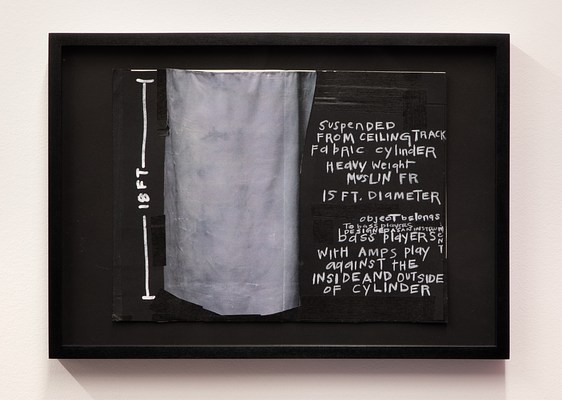 18 FT
SuspENDED
FROM CEILING TRACK
FabRIC cylinDER
HEAVY WeigHT
MusLIN FR
15 FT. DIAMETER
objecT belongs
To bass players
DESIGNED AS AN INSTRUMENT
bass PLAYERS
WITH AMPS PlAY
agaINST THE
INSIDE AND OUTSIDE
OF CYLINDER